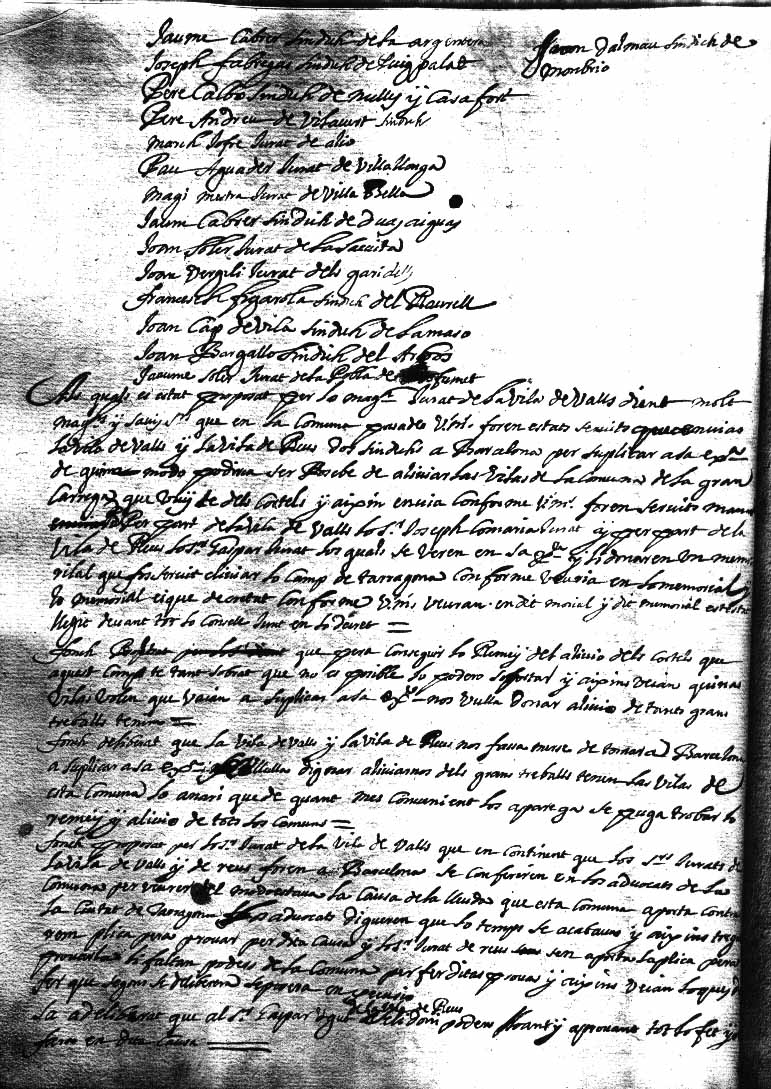 Jaume Cabrer sindich de la argentera
Joan Dalmau sindich de
Monbrio
Joseph fabregas sindich de Puig palat
Pere Calbo sindich de nulls y Casafort
Pere Andreu de Vilavert sindich
March Jofre Jurat de alio
Pau Aguader Jurat de Villallonga
Magi mestra Jurat de Villa Bella
Jaum Cabrer sindich de duas aiguas
Joan Soler Jurat de la Secuita
Joan Vergili Jurat dels garidells
Francesch figarola sindich del Rourell
Joan Cap de Vila sindich de la maso
Joan Bargallo sindich del Arbos
Jaaume Soler Jurat de la Pobla de mofumet
Als quals es estat proposat per lo magch Jurat de la Vila de Valls dient molt
magchs y savis Srs que en la Comuna pasada Vms foren estats servits que envias
la Vila de Valls y la Vila de Reus dos sindichs a Barcelona per suplicar a sa exa
de quina modo podria ser Rebebe de aliviar las Vilas de la Comuna de la gran
Carrega que vuy te dels Cortels y aixi en envia Conforme Vms foren servits manar
per part de la Vila de Valls lo Sr Joseph Comaria Jurat y per part de la
Vila de Reus lo Sr Gaspar Jurat los quals se veren en sa exa y li donaren un mem
rial que fos servit eliviar lo Camp de tarragona Conforme veuria en lo memorial y
lo memorial eique decretat Conforme Vms veuran en dit morial y dit memorial es estat
llegit devant tot lo Consell Junt en lo decret =
Fonch que pera Conseguir lo Remey del alivio dels Cortels que
aquest Camp te tant sobrat que no es posible lo podero soportar y aixi ns veian quinas
Vilas volen que vaian a suplicar a sa exa nos vulla donar alivio de tants grans
treballs tenim =
Fonch deliberat que la Vila de Valls y la Vila de Reus nos fassa merse de tornar a Barcelona
a suplicar a sa exa vulla dignar aliviarnos dels grans treballs tenen las Vilas de
esta Comuna lo anari que de quant mes Comunient los aparega se puga trobar lo
remey y alivio de tots los Comuns =
Fonch proposat per lo Sr Jurat de la Vila de Valls que en Continent que los Srs Jurats de
la Vila de Valls y de reus foren a Barcelona se Conferiren en los advocats de la
Comuna per veurer del modo estava la Causa de la lleuda que esta Comuna aporta Contra
la Ciutat de Tarragona los advocats digueren que lo temps se acabava y aixi ns trega
rem plica peras provar per dita Causa y lo Sr Jurat de reus sen aporta la plica pera
provarla li faltan poders de la Comuna per fer ditas provas y aixi ns veian lo que
fer que segons se deliberera se posera en execusio
de la Vila de Reus
sa adeliberat que al Sr Gaspar li dom poders y aprovant tot lo fet y
faran en dita Causa =